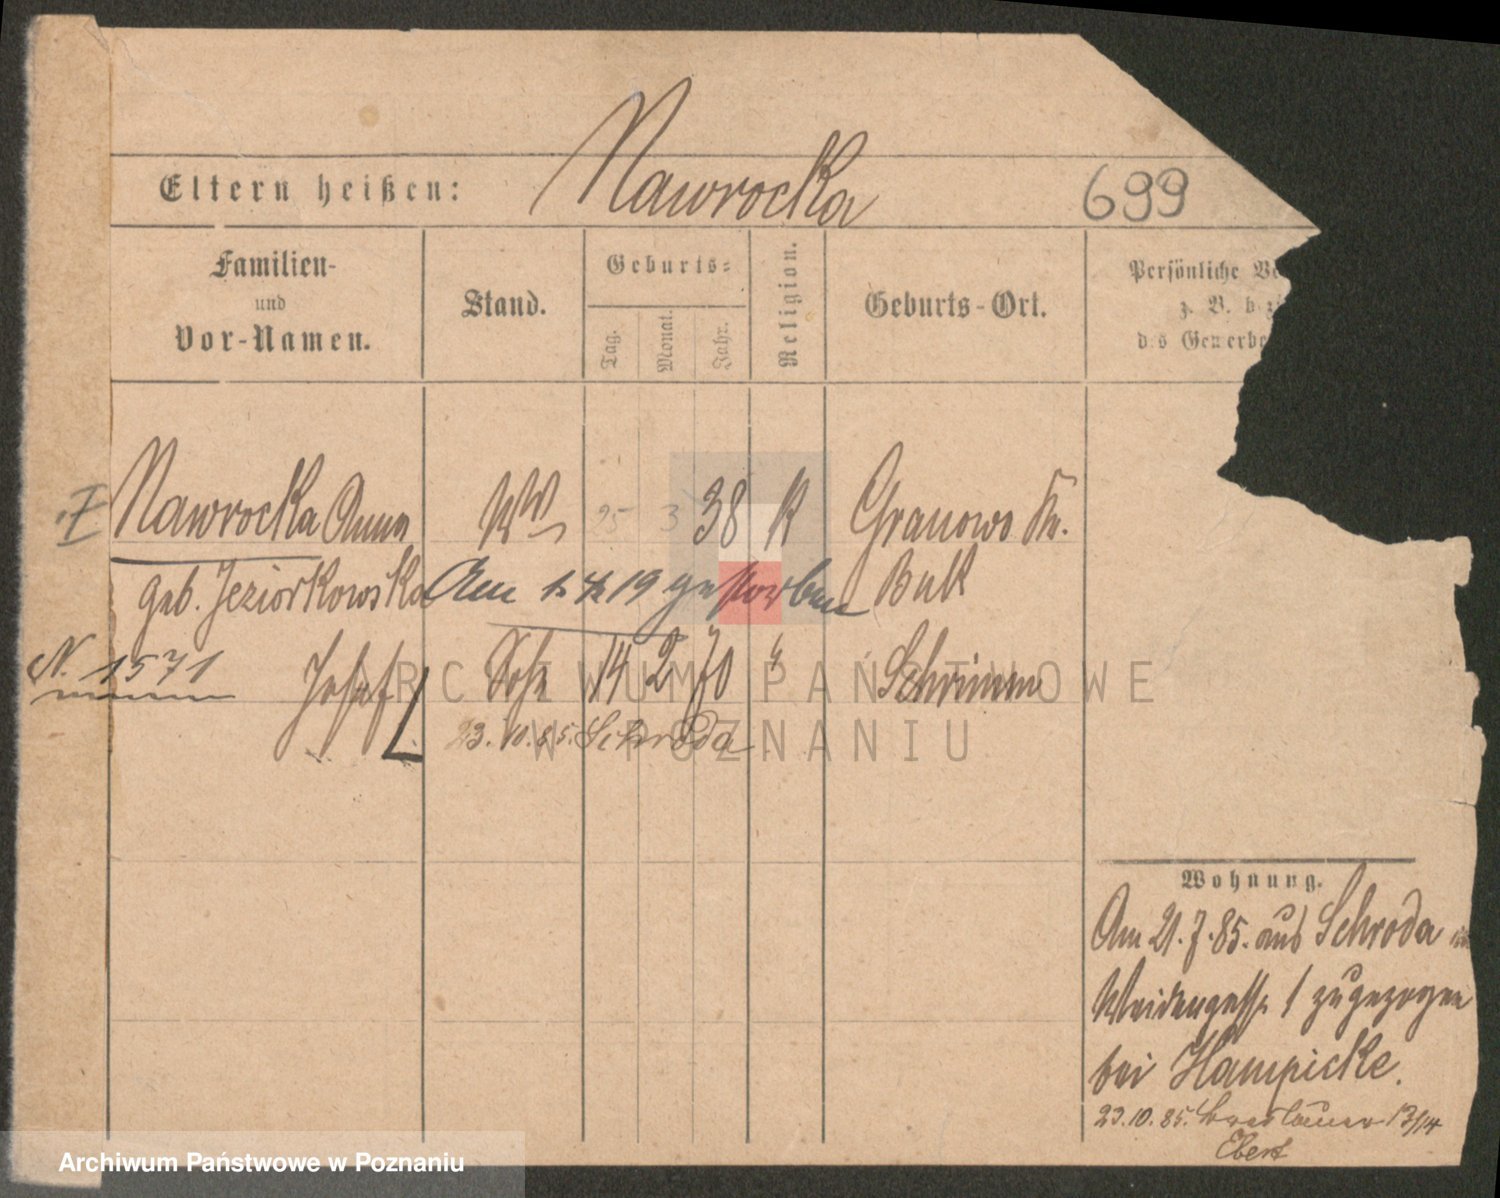 Nawrocka
Eltern heißen:
699
Familien-
und
Vor-Namen.
Stand.
Geburts=
Tag.
Monat.
Jahr.
Religion.
Geburts-Ort.
Persönliche
z. B.
des Gewerbe
I Nawrocka Anna WW 25 3 38 K Granowo Kr.
geb. Jeziorkowska Am gestorben Buk
N. 1571 Josef Sohn 14 2 70 " Schrimm
23. 10. 85. Schroda
ARCHIWUM PAŃSTWOWE
W POZNANIU
Wohnung.
Am 21. 7. 85. aus Schroda
Weidengasse 1 zugezogen
bei Hampicke.
23. 10. 85. Breslauer 13/14
Ebert
Archiwum Państwowe w Poznaniu